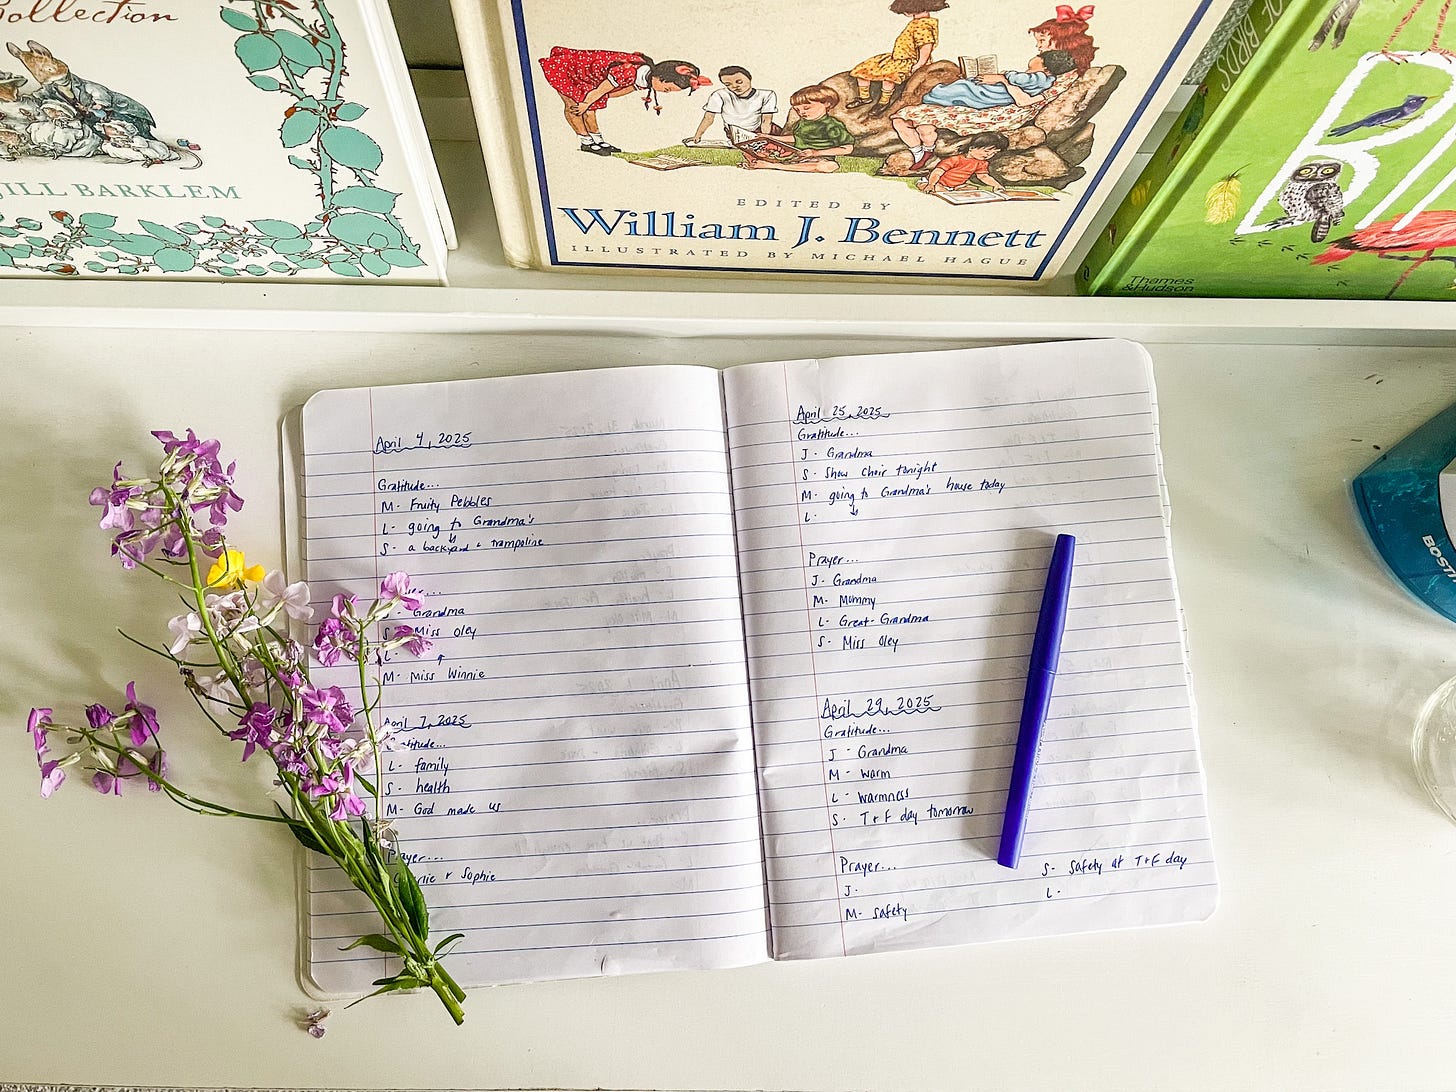 Collection
JILL BARKLEM
EDITED BY
William J. Bennett
ILLUSTRATED BY MICHAEL HAGUE
OF BIRDS
Thames
&Hudson
BI
BOSTI
April 4, 2025
Gratitude...
M- Fruity Pebbles
L- going to Grandma's
S- a backyard + trampoline
Grandma
S- Miss Oley
L-
M- Miss Winnie
April 7, 2025
L- family
S- health
M- God made us
Prayer...
+ Sophie
April 25, 2025
Gratitude...
J- Grandma
S- Show Choir tonight
M- going to Grandma's house today
L-
Prayer...
J- Grandma
M- Mommy
L- Great-Grandma
S- Miss Oley
April 29, 2025
Gratitude...
J- Grandma
M- warm
L- warmness
S- T+F day tomorrow
Prayer...
J-
M- safety
S- safety at T+F day
L-